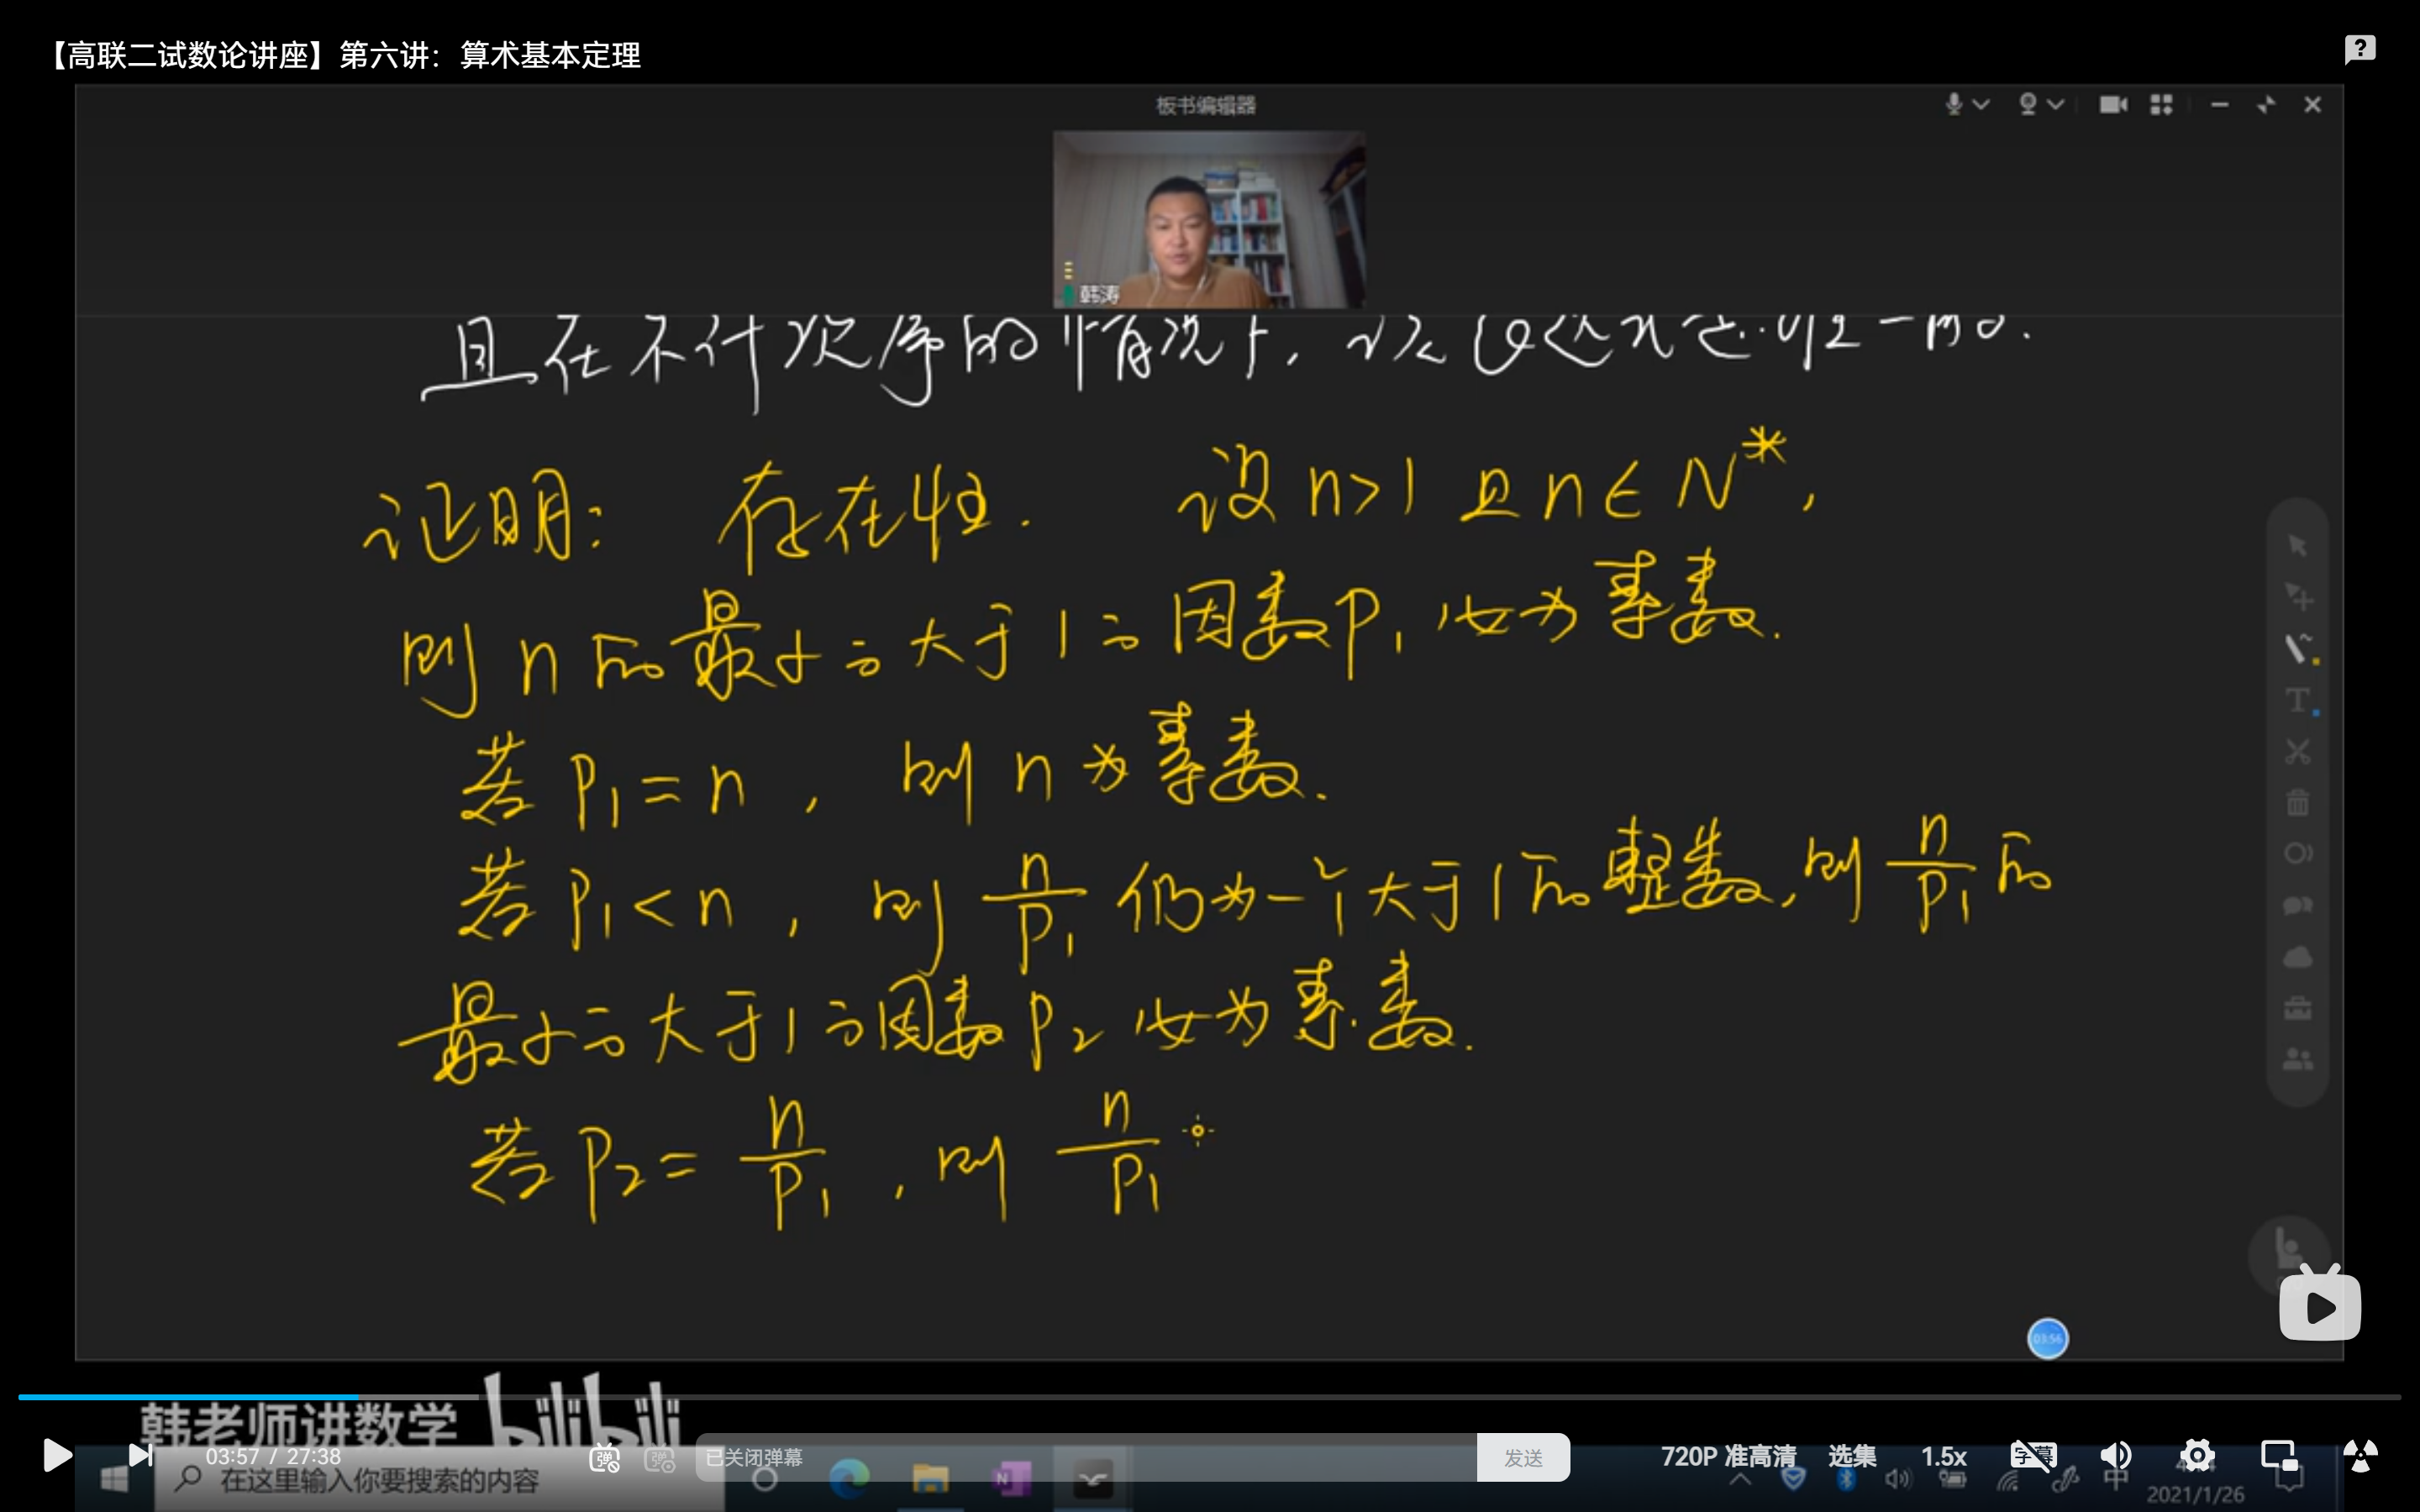 【高联二试数论讲座】第六讲：算术基本定理
板书编辑器
韩涛
且在不计次序的情况下，
证明： 存在性. 设 n>1 且 n∈N*，
则 n 的最小的大于1的因数 P₁ 必为素数.
若 P₁=n ， 则 n 为素数.
若 P₁<n ， 则 n/P₁ 仍为一个大于1的整数，则 n/P₁ 的
最小的大于1的因数 P₂ 必为素数.
若 P₂= n/P₁ ，则 n/P₁
03:56
韩老师讲数学 bilibili
03:57 / 27:38 弹 弹 已关闭弹幕 发送 720P 准高清 选集 1.5x 字幕
在这里输入你要搜索的内容 N 中
2021/1/26